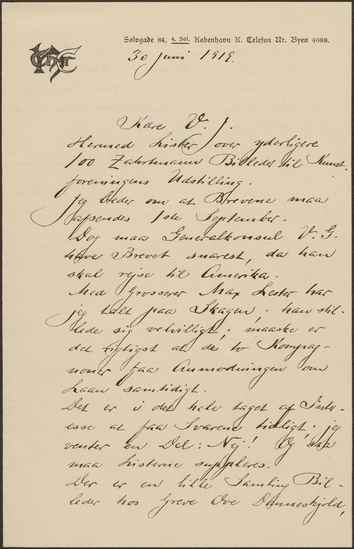 Sølvgade 84, 4. Sal. København K. Telefon Nr. Byen 4088.
30 juni 1919.
Kære V. J.
Hermed Lister over yderligere
100 Zahrtmann Billeder til Kunst-
foreningens Udstilling.
Jeg beder om at Brevene maa
afsendes 1ste September.
Dog maa Generalkonsul V. G.
have Brevet snarest, da han
skal rejse til Amerika.
Med Grosserer Max Lester har
jeg talt paa Skagen; han stil-
lede sig velvilligt; maaske er
det rigtigst at de to Kompag-
noner faa Anmodningen om
Laan samtidigt.
Det er i det hele taget af Inter-
esse at faa Svarene tidligt; jeg
venter en Del: Nej! Og saa
maa Listerne suppleres.
Der er en lille Samling Bil-
leder hos Greve Ove Danneskjold,